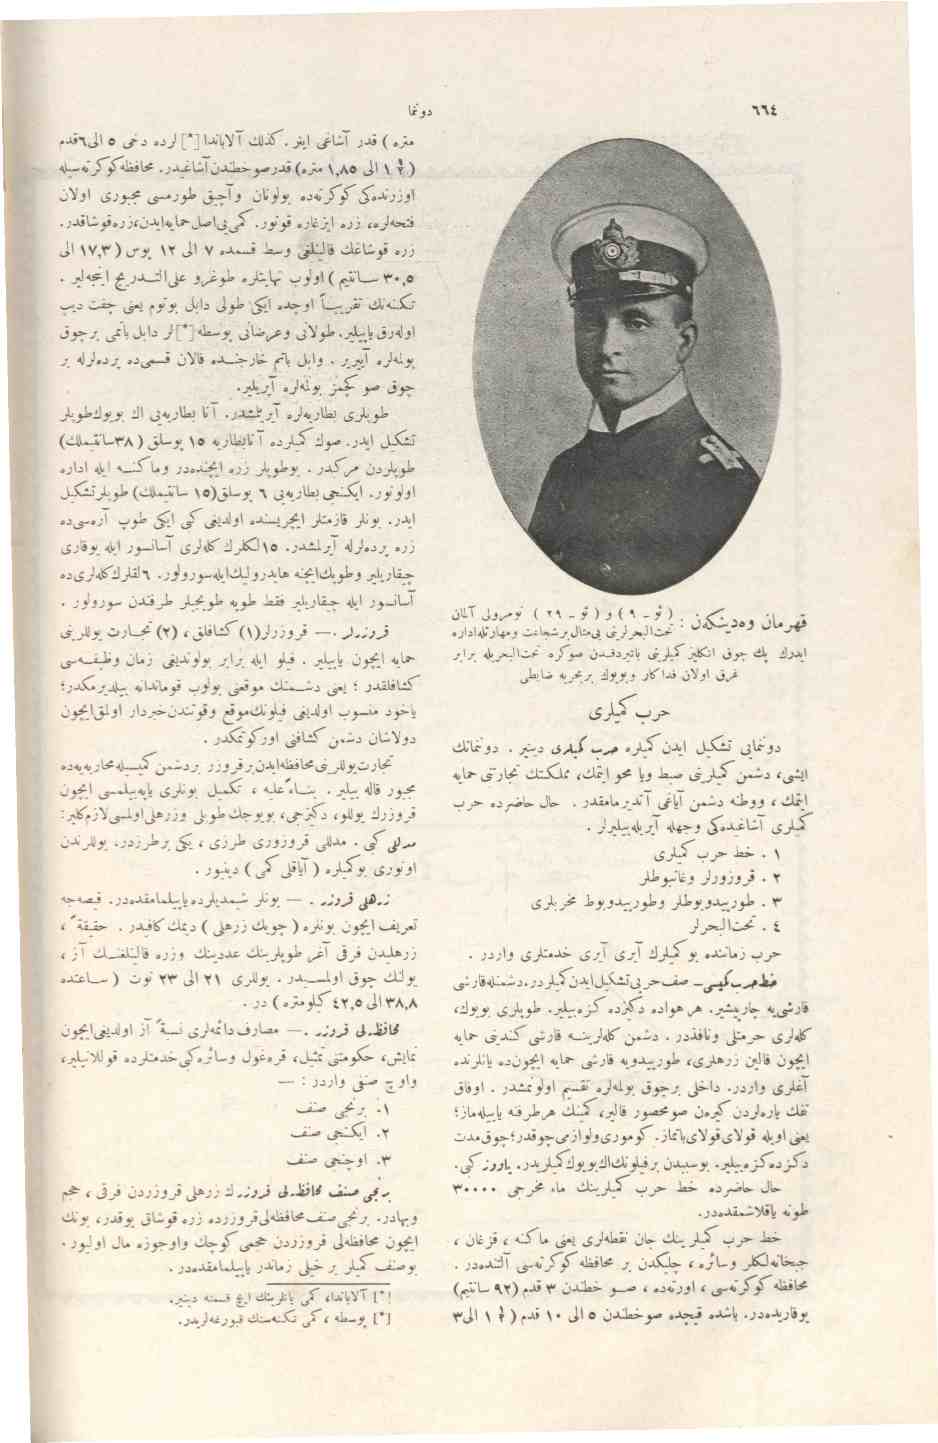 ٦٦٤
دونما
قهرمان وه‌ديشكه‌ن : ( ئو ـ ٩ ) و ( ئو ـ ٢٩ ) نومرولى آلمان
تحت‌البحرلرينى بى‌مثال بر شجاعت و مهارتله اداره
ايدرك پك چوق انكليز كميلرينى باتيردقدن صوكره تحت‌البحريله برابر
غرق اولان فداكار و بويوك بر بحريه ضابطى
حرب كميلرى
دونمايى تشكيل ايدن كميلره حرب كميلرى دينير . دونمانك
ايشى ، دشمن كميلرينى ضبط ويا محو ايتمك ، مملكتك تجارتنى حمايه
ايتمك ، ووطنه دشمن آياغى آتديرمامقدر . حال حاضرده حرب
كميلرى آشاغيده‌كى وجهله آيريله‌بيليرلر .
١ . خط حرب كميلرى
٢ . قروزورلر وغانبوطلر
٣ . طورپيدوبوطلر وطورپيدوبوط مخربلرى
٤ . تحت‌البحرلر
حرب زماننده بو كميلرك آيرى آيرى خدمتلرى واردر .
خط حرب كميسى ـ صف حربى تشكيل ايدن كميلردر. دشمنله قارشى
قارشى‌يه چارپيشير. هر هواده دكزده كزه‌بيلير. طوپلرى بويوك ،
كله‌لرى حرمتلى ونافذدر . دشمن كله‌لرينه قارشى كندينى حمايه
ايچون قالين زرهلرى ، طورپيدويه قارشى حمايه ايچون‌ده يانلرنده
آغلرى واردر. داخلى برچوق بولمه‌لره تقسيم اولونمشدر . اوفاق
تفك ياره‌لردن كيره‌ن صومحصور قالير ، كمينك هر طرفنه ياييله‌ماز ؛
يعنى اويله قولاى قولاى باتماز. كومورى ولوازمى چوقدر ؛ چوق مدت
دكزده كزه‌بيلير. بوسببدن برفيلونك اك بويوك كميلريدر. ياووز كبى.
حال حاضرده خط حرب كميلرينك ماء مخرجى ٣٠٠٠٠
طونه ياقلاشمقده‌در.
خط حرب كميلرينك جان نقطه‌لرى يعنى ماكنه ، قزغان ،
جبخانه‌لكلر وسائره ، چليكدن بر محافظه كوكرته‌سى آلتنده‌در .
محافظه كوكرته‌سى ، اورته‌ده ، صو خطندن ٣ قدم (٩٢ سانتيم)
يوقاريده‌در. باشده قيچده صوخطندن ٥ الى ١٠ قدم ( ½ ١ الى ٣
متره ) قدر آشاغى اينر . كذلك آلاباندا [*] لرده دخى ٥ الى ٦ قدم
( ½ ١ الى ١,٨٥ متره ) قدر صوخطندن آشاغيدر . محافظه كوكرته‌سيله
اوزرنده‌كى كوكرته‌ده بولونان وآچيق طورمسى مجبورى اولان
فتحه‌لره ، زره ايزغاره قونور. كمى‌يى اصل حمايه ايدن ، زره قوشاقدر.
زره قوشاغك قالينلغى وسط قسمده ٧ الى ١٢ پوس ( ١٧,٣ الى
٣٠,٥ سانتيم ) اولوب نهايتلره طوغرو على‌التدريج اينجه‌لير .
تكنه‌نك تقريباً اوچده ايكى طولى دابل بوتوم يعنى چفت ديپ
اوله‌رق ياپيلير. طولانى وعرضانى پوسطه [*] لر دابل باتمى برچوق
بولمه‌لره آييرير . دابل باتم خارجنده قالان قسمى‌ده پرده‌لرله بر
چوق صو كچمز بولمه‌لره آيريلير.
طوپلرى بطاريه‌لره آيريلمشدر. آنا بطاريه‌يى اك بويوك طوپلر
تشكيل ايدر. صوك كميلرده آنابطاريه ١٥ پوسلق ( ٣٨ سانتيملك)
طوپلردن مركبدر . بوطوپلر زره ايچنده‌در وماكنه ايله اداره
اولونور. ايكنجى بطاريه‌يى ٦ پوسلق (١٥ سانتيملك) طوپلر تشكيل
ايدر. بونلر قازمتلر ايچريسنده اولديغى كبى ايكى طوپ آره‌سى‌ده
زره پرده‌لرله آيرلمشدر. ١٥ لكلرك كله‌لرى آسانسور ايله يوقارى
چيقاريلير وطوپك ايچنه هايدروليك ايله سورولور. ٦ لقلرك كله‌لرى‌ده
آسانسور ايله چيقاريلير فقط طوپه طوپجيلر طرفندن سورولور .
قروزرلر .ـ قروزرلر (١) كشافلق ، (٢) تجارت يوللرينى
حمايه ايچون ياپيلير . فيلو ايله برابر بولونديغى زمان وظيفه‌سى
كشافلقدر ؛ يعنى دشمنك موقعنى بولوب قوماندانه بيلديرمكدر ؛
ياخود منسوب اولديغى فيلونك موقع وقوتندن خبردار اولمق ايچون
دولاشان دشمن كشافنى اوركوتمكدر .
تجارت يوللرينى محافظه ايدن برقروزر بردشمن كميسيله محاربه‌يه‌ده
مجبور قاله بيلير . بناءً عليه ، تكميل بونلرى ياپه‌بيلمسى ايچون
قروزرك يوللو ، دكزجى ، بويوجك طوپلى وزرهلى اولمسى لازمكلير :
مدللى كبى . مدللى قروزورى طرزى ، يكى برطرزدر. يوللرندن
اوتورى بوكميلره ( آياقلى كمى ) دينيور .
زرهلى قروزر . ـ بونلر شيمديلرده ياپيلمامقده‌در. قيصه‌جه
تعريف ايچون بونلره ( چويك زرهلى ) ديمك كافيدر . حقيقةً ،
زرهليدن فرقى آغر طوپلرينك عددينك وزره قالينلغنك آز ،
يولنك چوق اولمسيدر . يوللرى ٢١ الى ٢٣ نوت ( ساعتده
٣٨,٨ الى ٤٢,٥ كيلومتره ) در .
محافظه‌لى قروزر .ـ مصارف دائمه‌لرى نسبةً آز اولديغى ايچون
نمايش ، حكومتى تمثيل ، قره‌غول وسائره كبى خدمتلرده قوللانيلير ،
واوچ صنفى واردر : ـ
١. برنجى صنف
٢. ايكنجى صنف
٣. اوچنجى صنف
برنجى صنف محافظه‌لى قروزرك زرهلى قروزردن فرقى ، حجم
وبهادر. برنجى صنف محافظه‌لى قروزرده زره قوشاق يوقدر ، بونك
ايچون محافظه‌لى قروزردن حجمى كوچك واوجوزه مال اوليور .
بوصنف كميلر بر خيلى زماندر ياپيلمامقده‌در .
[*] آلاباندا ، كمى يانلرينك ايچ قسمنه دينير.
[*] پوسطه ، كمى تكنه‌سنك قبورغه‌لريدر.